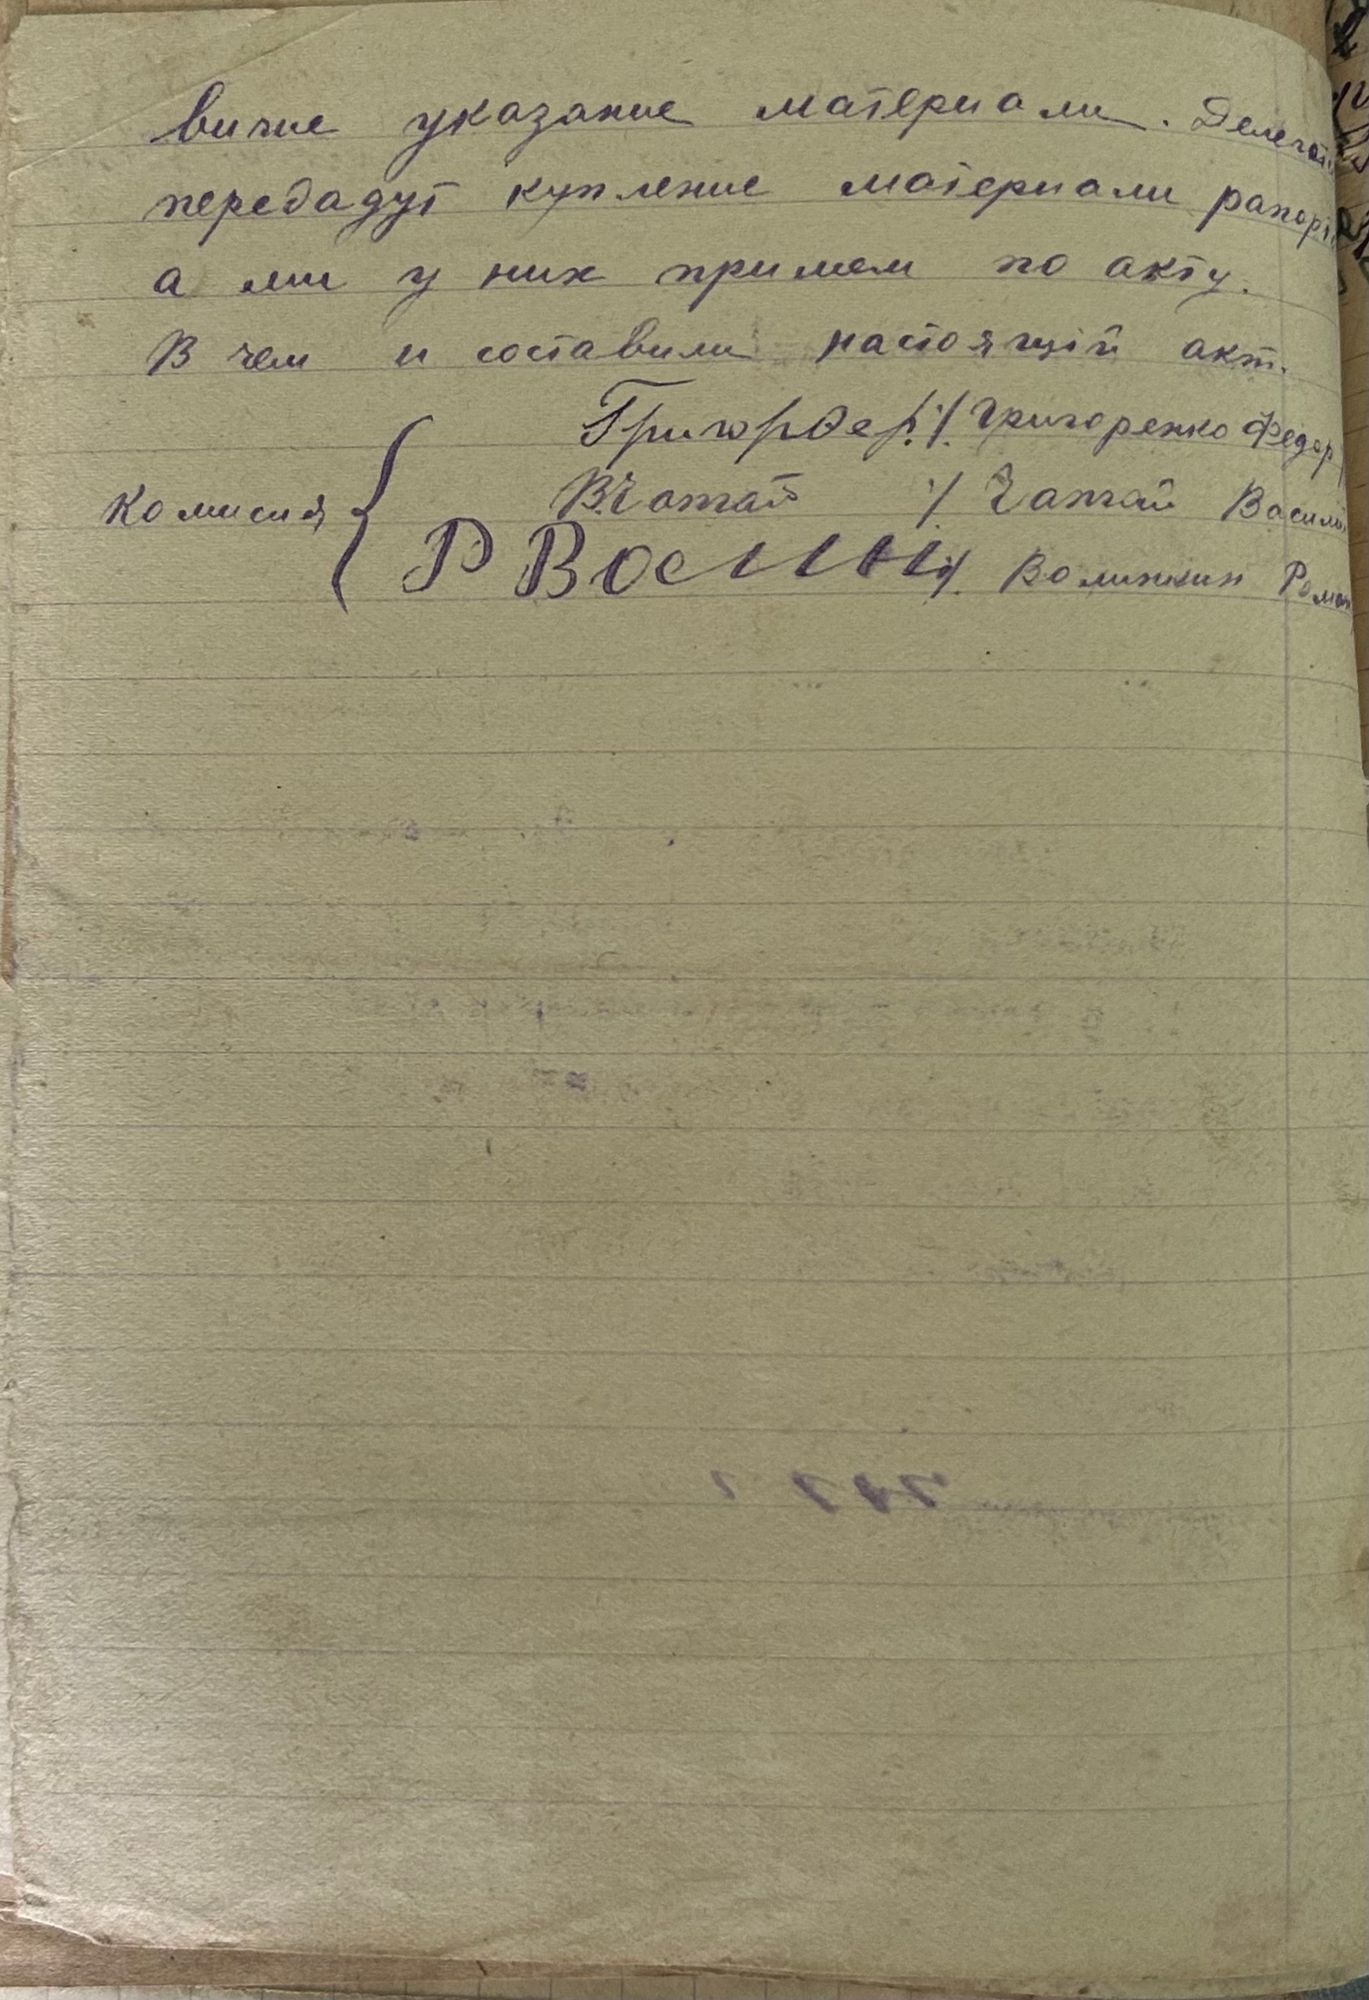 вичие указание материали. Делегати
передадут купление материали рапорт
а ми у них примем по акту.
В чем и составили настоящий акт.
Григорфер /. Григоренко Федор
Комисия { В.Чатай /. Чатай Василий
Р Во /. Волинкин Роман